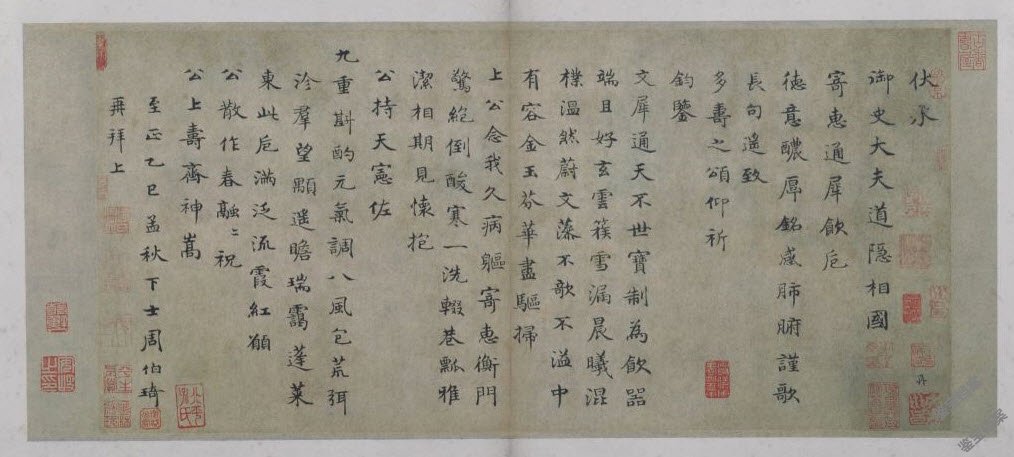 伏承
御史大夫道隱相國
寄惠通犀飲卮
德意醲厚銘感肺腑謹歌
長句遙致
多壽之頌仰祈
鈞鑒
文犀通天不世寶制為飲器
端且好玄雲簇雪漏晨曦混
樸溫然蔚文藻不歌不溢中
有容金玉芬華盡驅掃
上公念我久病軀寄惠衡門
驚絕倒酸寒一洗輟巷瓢雅
潔相期見懷抱
公持天憲佐
九重斟酌元氣調八風包荒弭
沴羣望顒遥瞻瑞靄蓬萊
東此卮滿泛流霞紅願
公散作春融〻祝
公上壽齊神嵩
至正乙巳孟秋下士周伯琦
再拜上